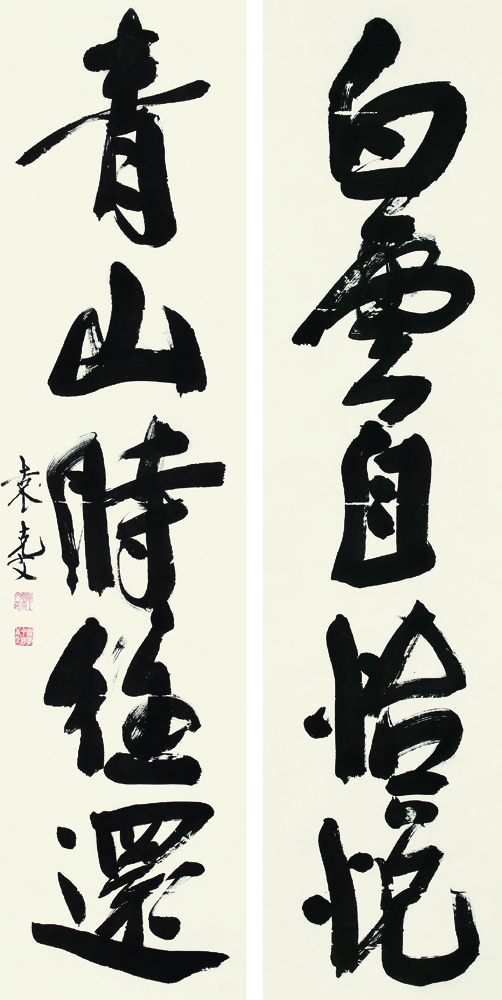 白雲自怡悅
青山時往還
袁